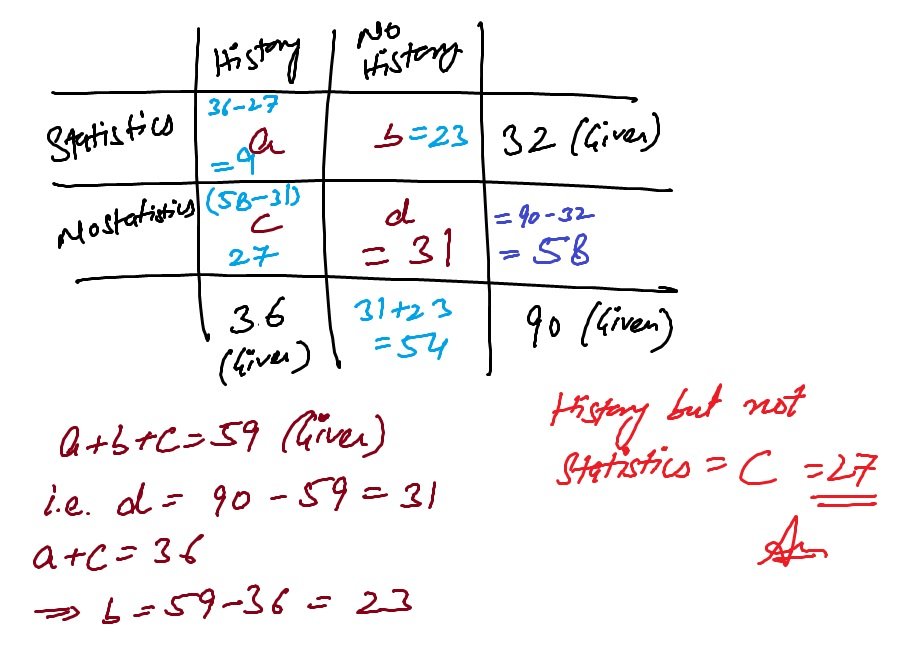 History
No History
36-27
Statistics
a
= 9
b = 23
32 (Given)
No statistics
(58-31)
c
27
d
= 31
= 90-32
= 58
36
(Given)
31+23
= 54
90 (Given)
a+b+c = 59 (Given)
i.e. d = 90 - 59 = 31
a+c = 36
⇒ b = 59-36 = 23
History but not
Statistics = C = 27
An